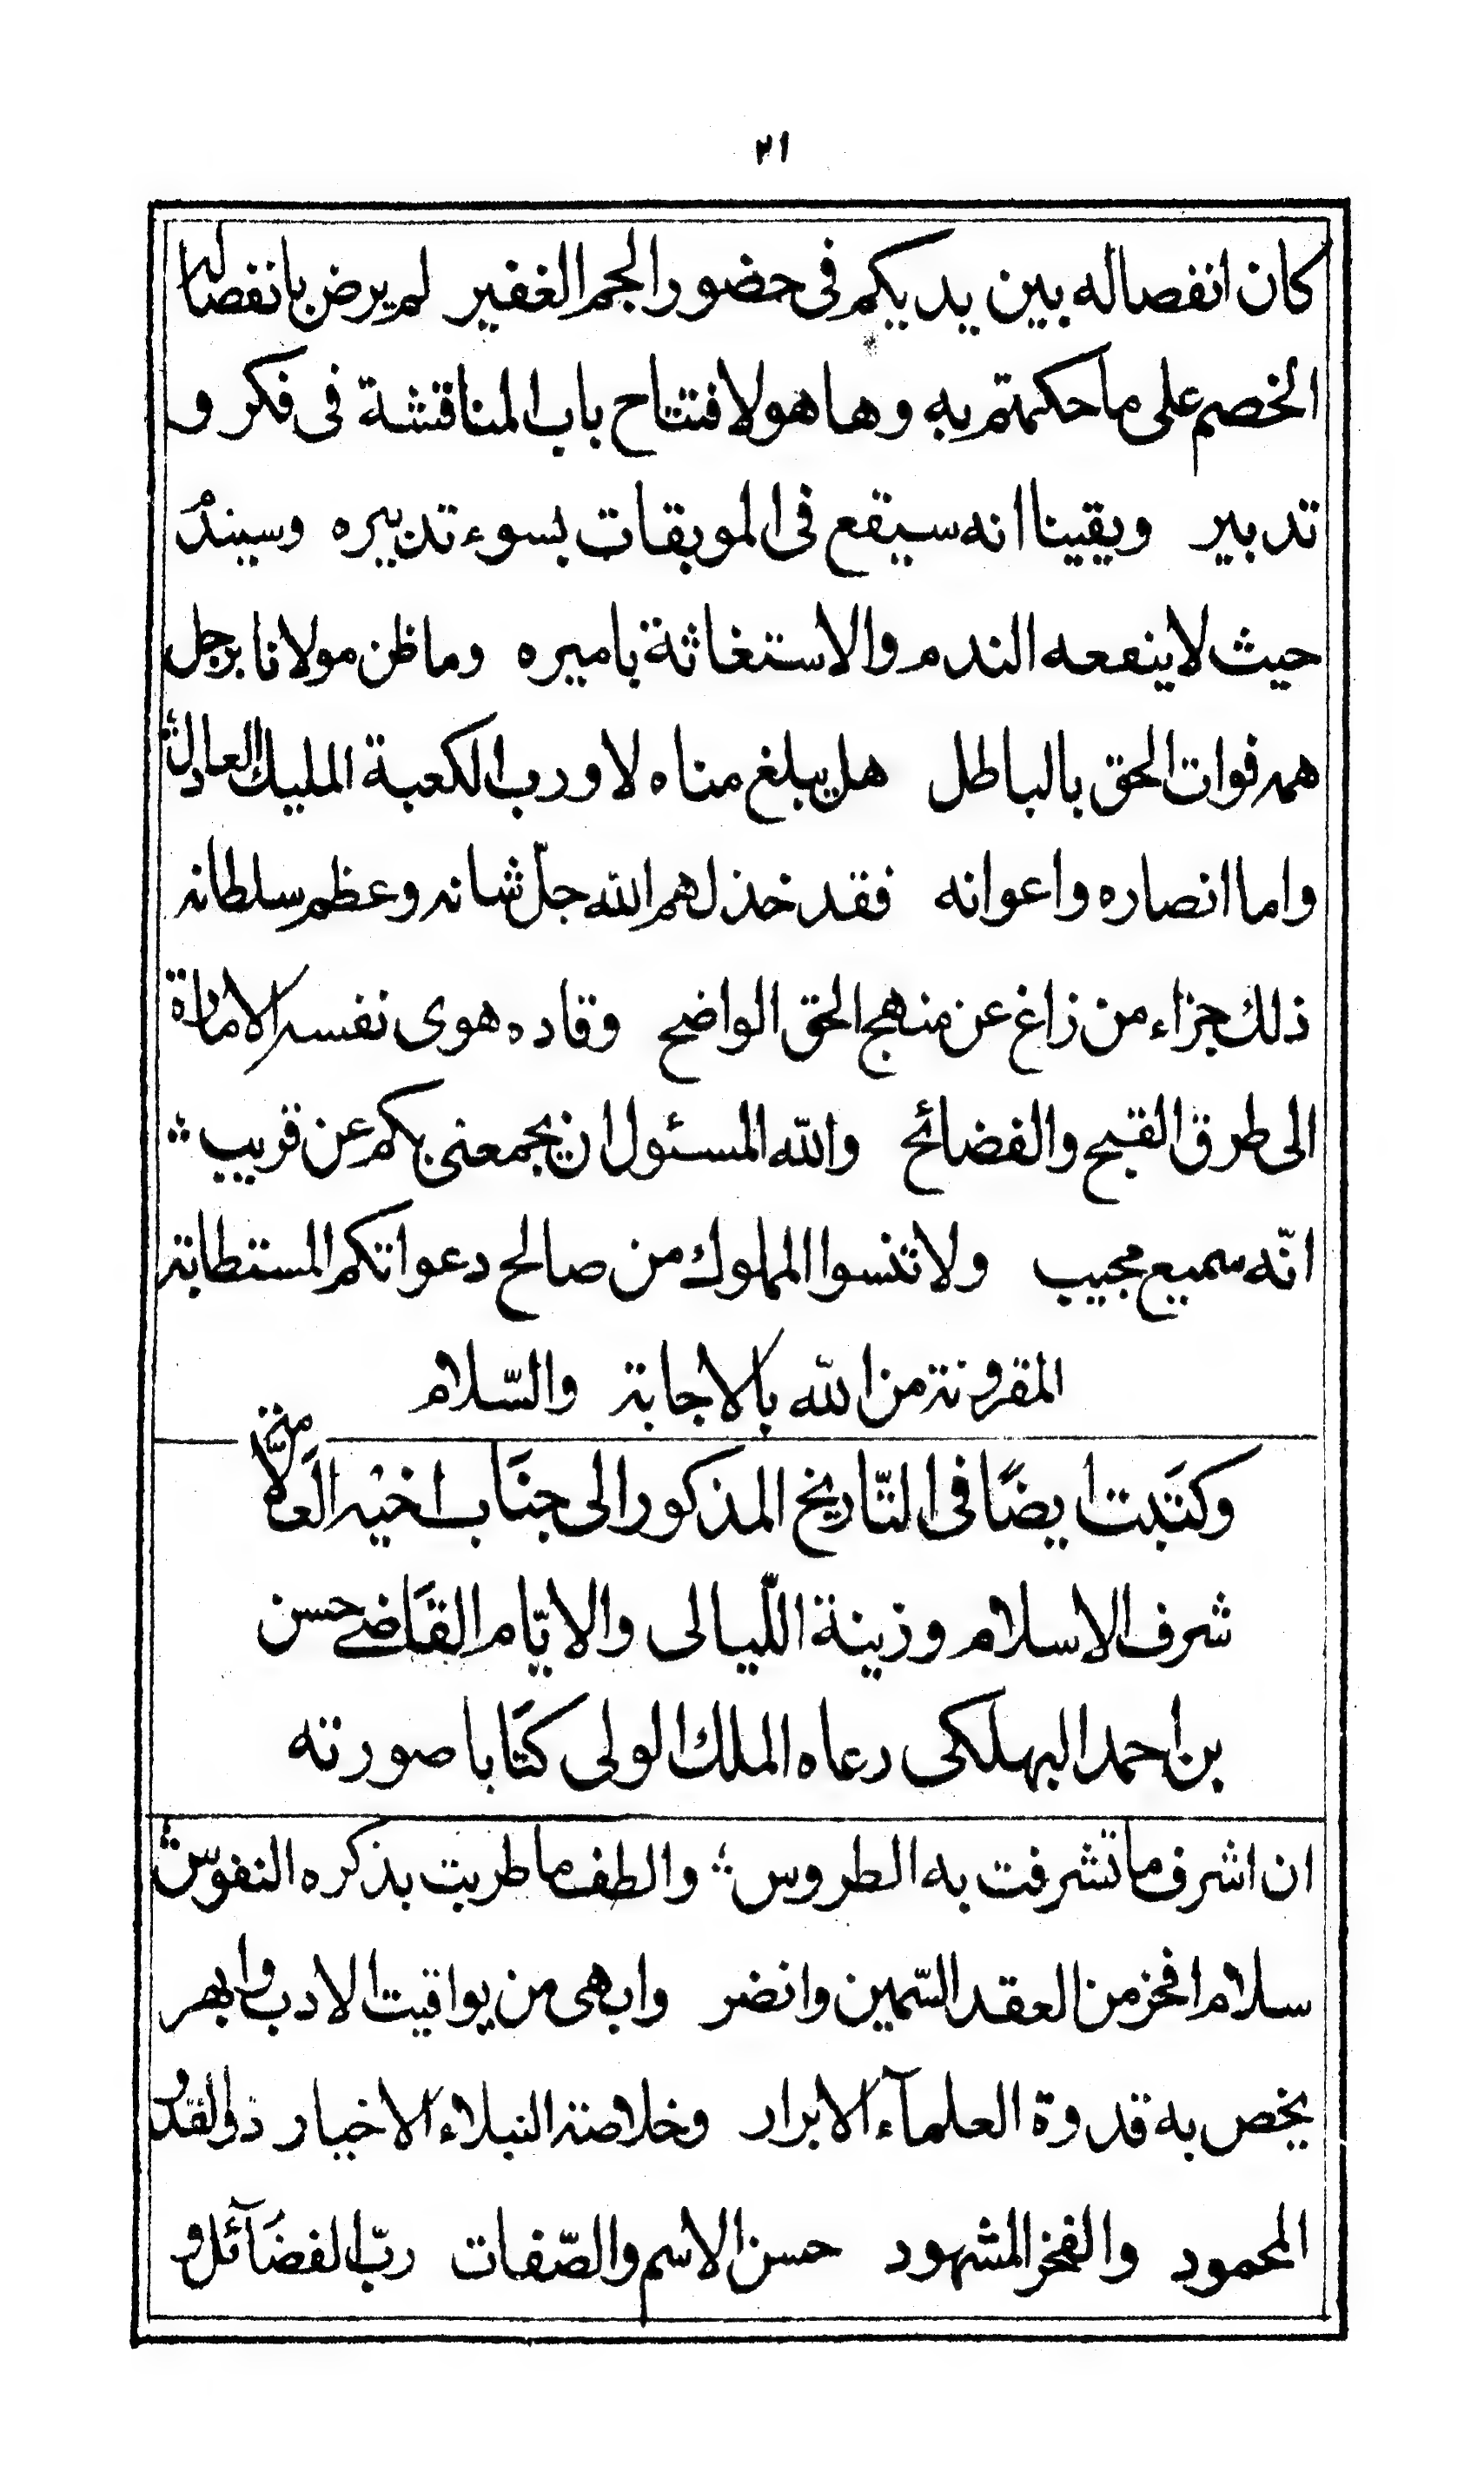 ٢١
كان انفصاله بين يديكم فى حضور الجم الغفير لم يرض بانفصاله
الخصم على ما حكمتم به وها هو لافتتاح باب المناقشة فى فكر و
تدبير ويقينا انه سيقع فى الموبقات بسوء تدبيره وسيندم
حيث لا ينفعه الندم والاستغاثة باميره وما ظن مولانا برجل
همه فوات الحق بالباطل هل يبلغ مناه لا ورب الكعبة المليك العادل
واما انصاره واعوانه فقد خذلهم الله جلّ شانه وعظم سلطانه
ذلك جزاء من زاغ عن منهج الحق الواضح وقاده هوى نفسه الامارة
الى طرق القبح والفضائح والله المسئول ان يجمعنى بكم عن قريب
انّه سميع مجيب ولا تنسوا المملوك من صالح دعواتكم المستطابة
المقرونة من الله بالاجابة والسّلام
وكتَبت ايضًا فى التّاريخ المذكور الى جنَاب اخيْه العَلّامة
شرف الاسلام وزينة اللّيالى والايّام القَاضى حسن
بن احمد البهلكى رعاه الملك الولى كتَابا صورته
ان اشرف ما تشرفت به الطروس والطف ما طربت بذكره النفوس
سلام افخر من العقد السّمين وانضر وابهى من يواقيت الادب وابهر
يخص به قدوة العلمآء الابرار وخلاصة النبلاء الاخيار ذو القدر
المحمود والفخر المشهود حسن الاسم والصّفات ربّ الفضَآئل و